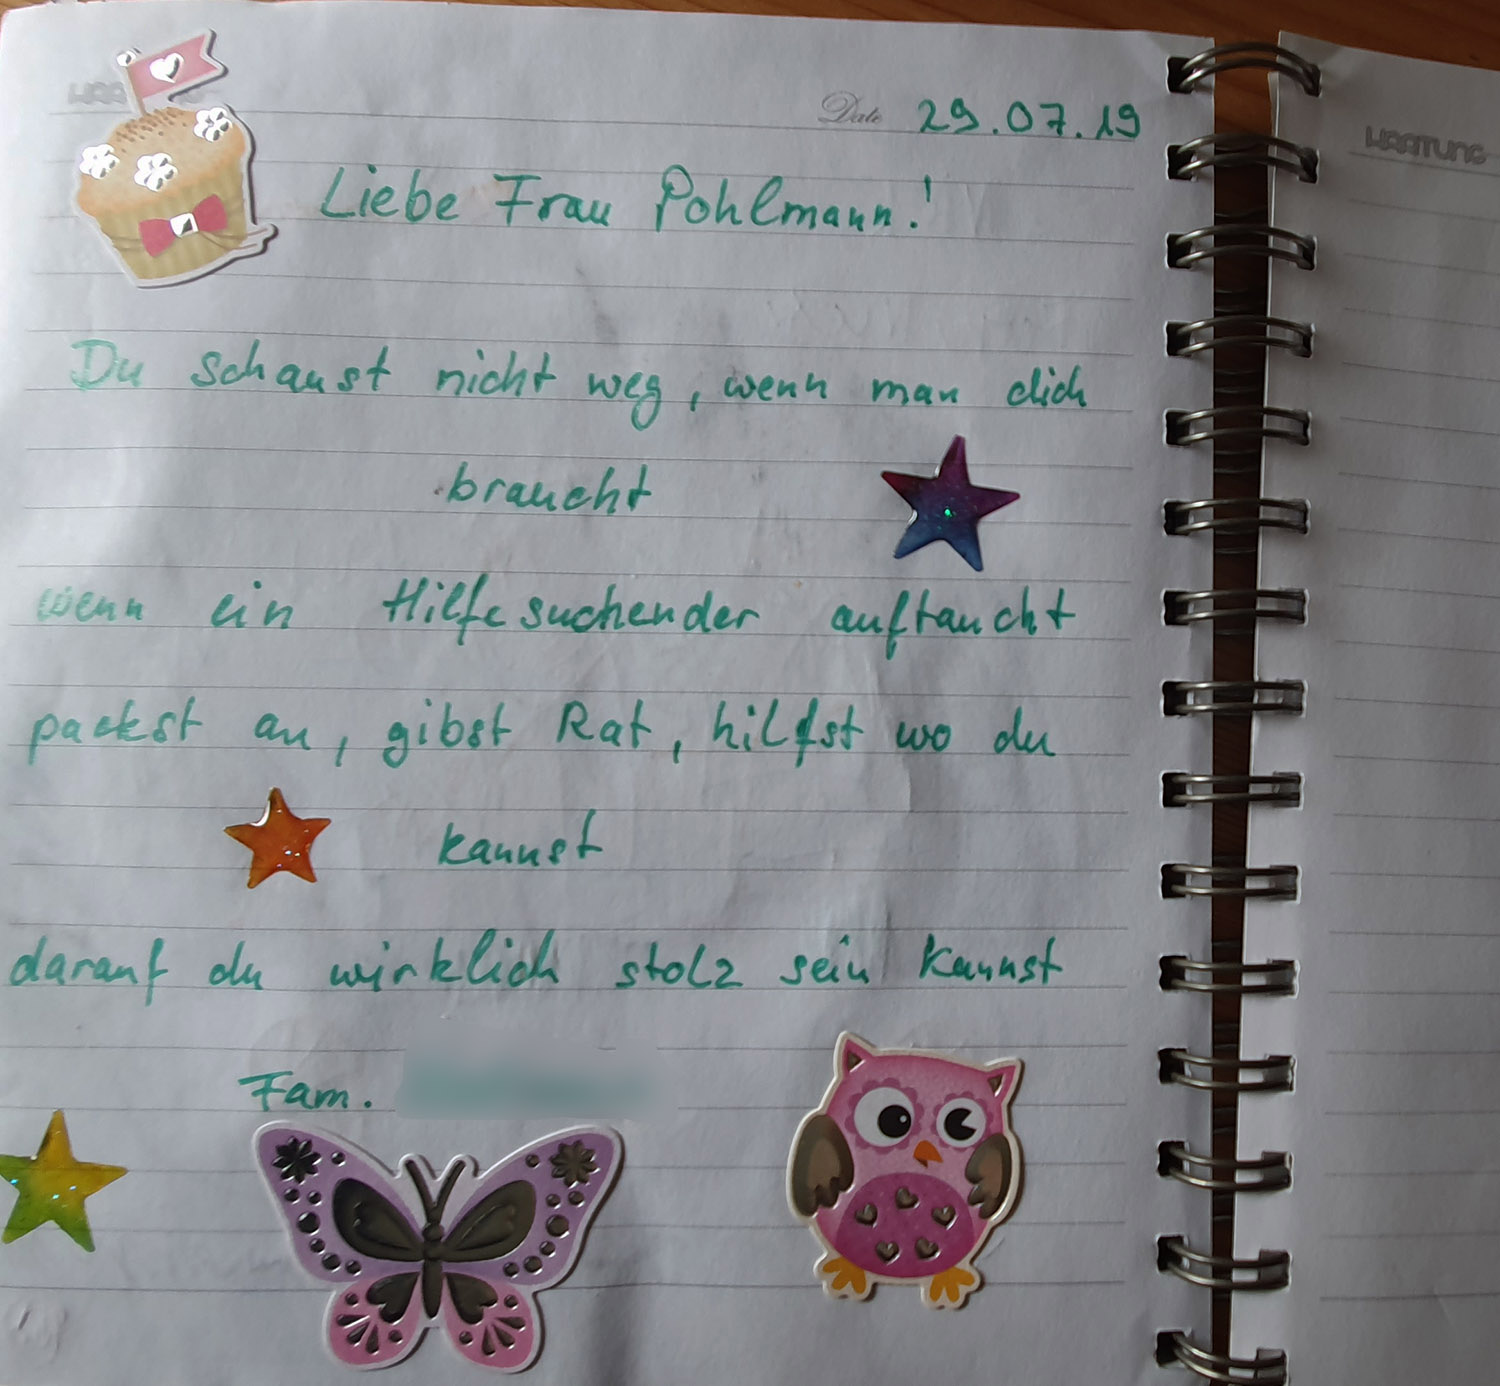 Date 29.07.19
Liebe Frau Pohlmann!
Du schaust nicht weg, wenn man dich
braucht
wenn ein Hilfesuchender auftaucht
packst an, gibst Rat, hilfst wo du
kannst
darauf du wirklich stolz sein kannst
Fam.